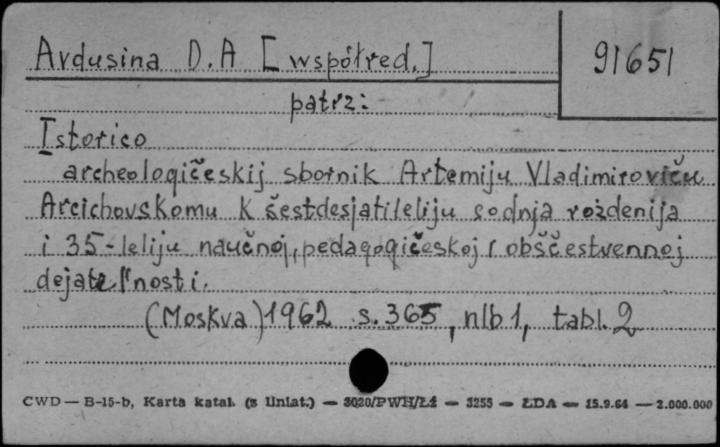 Avdusina D.A [współred.]
91651
patrz:
Istorico
archeologičeskij sbornik Artemiju Vladimiroviču
Arcichovskomu k šestdesjatileliju sodnja roždenija
i 35-leliju naučnoj, pedagogičeskoj i obščestvennoj
dejatel'nosti.
(Moskva) 1962 s. 365, nlb 1, tabl. 2
CWD — B-15-b, Karta katal. (z liniat.) — 3020/PWH/Łź — 3255 — ŁDA — 15.9.64 — 2.000.000